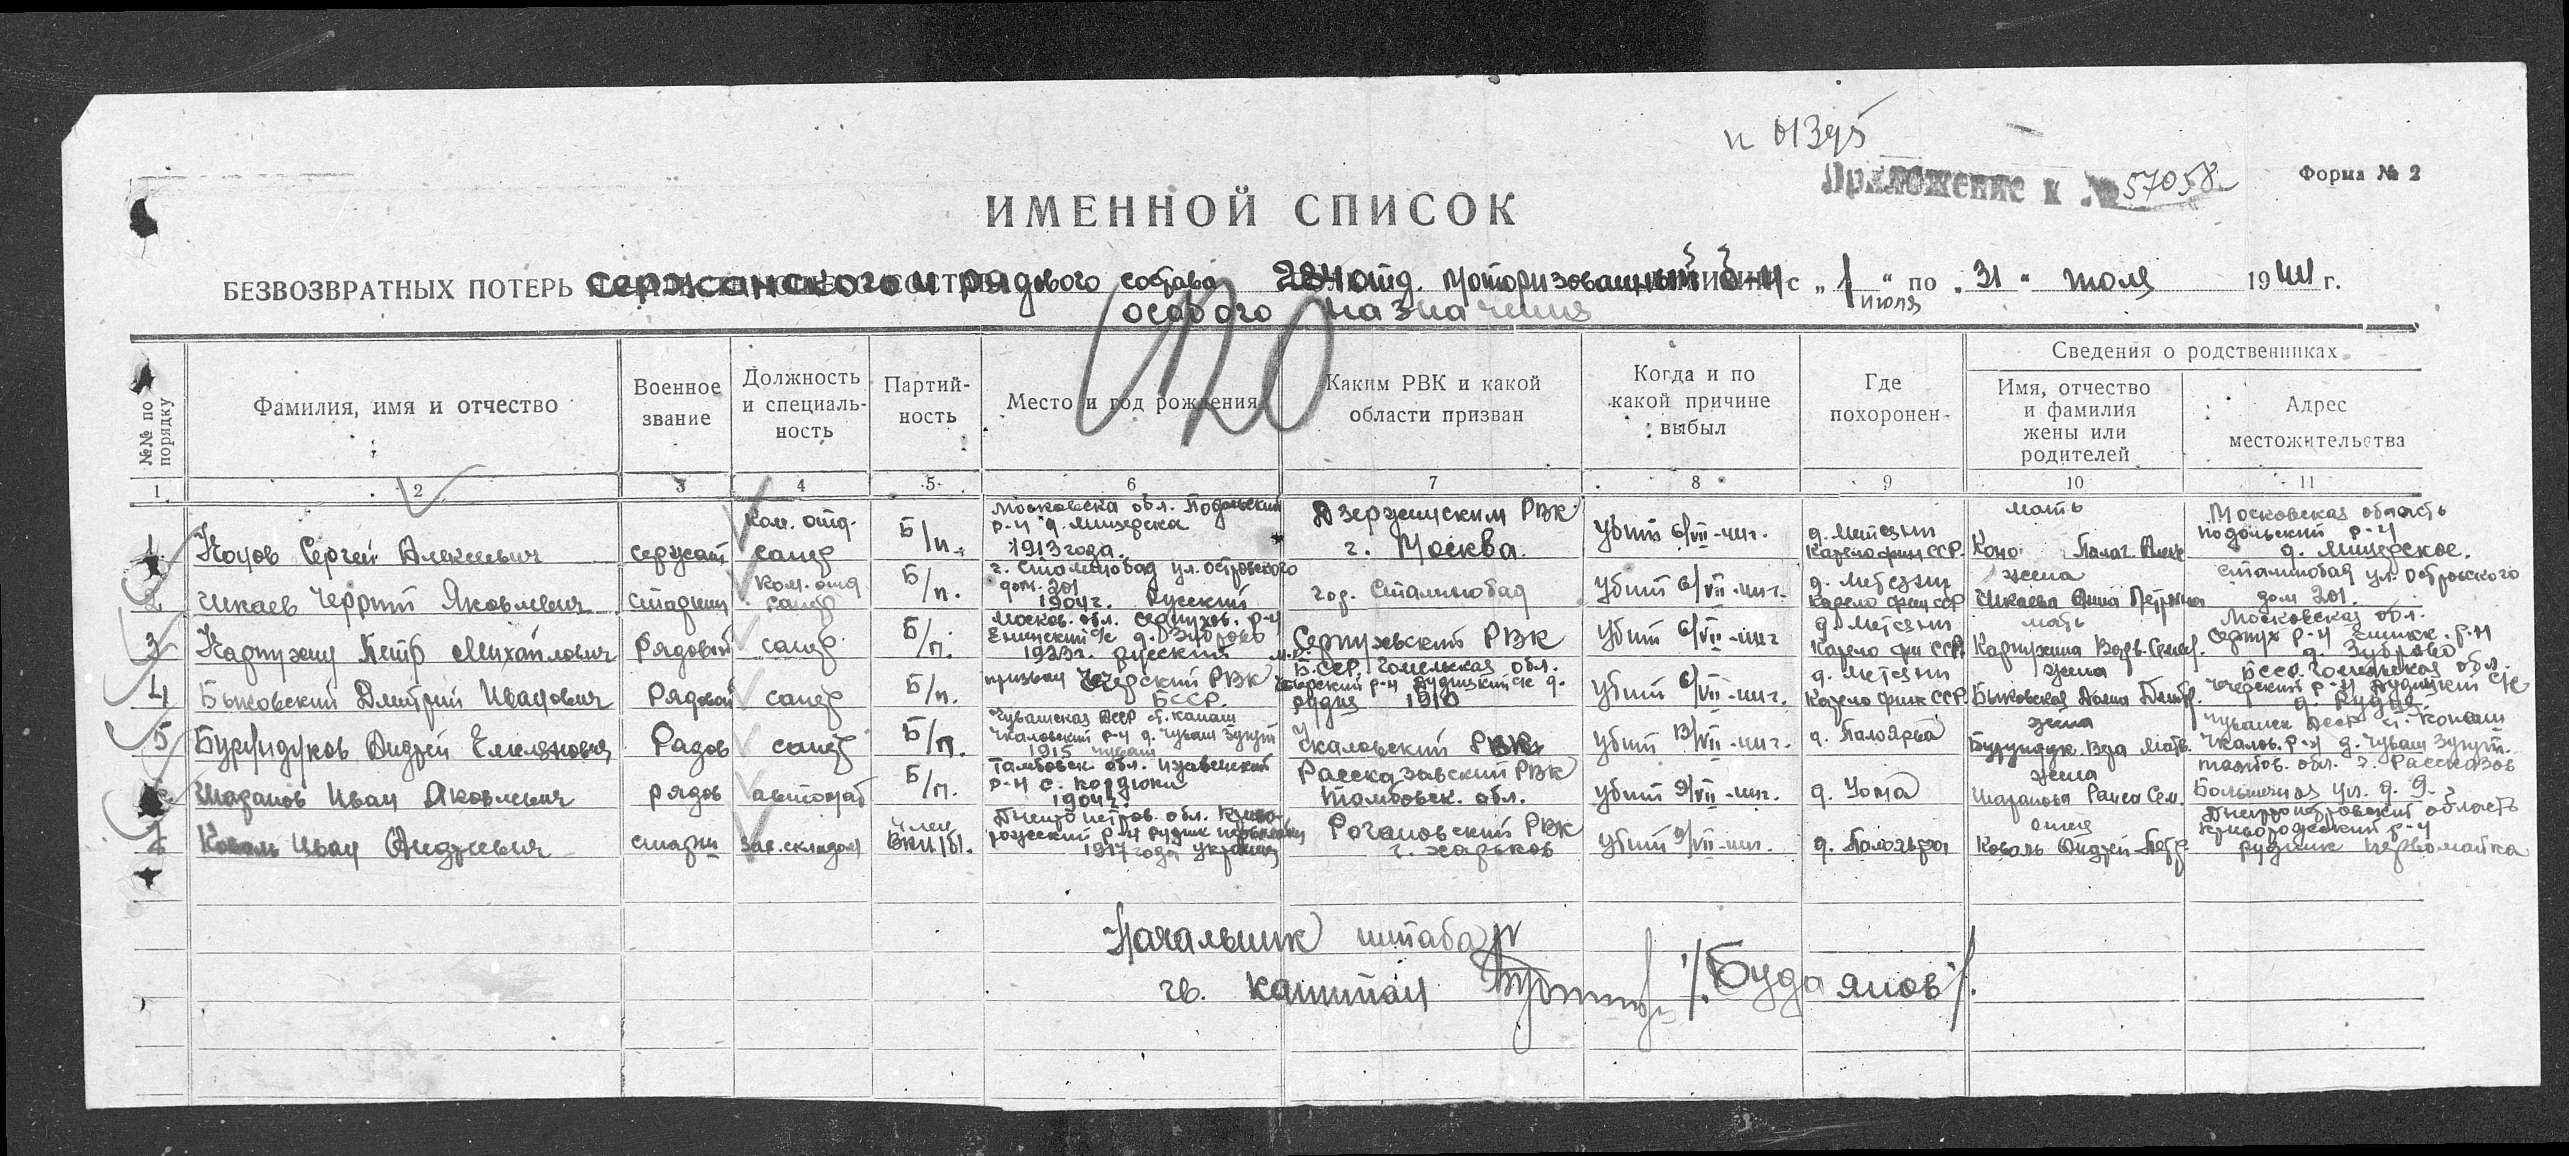 n 01395
Приложение к № 57058
Форма № 2
ИМЕННОЙ СПИСОК
БЕЗВОЗВРАТНЫХ ПОТЕРЬ сержанского и рядового состава 284 отд. моторизованный б-н с „1“ июля по „31“ июля 1944 г.
особого назначения
№№ по порядку
Фамилия, имя и отчество
Военное звание
Должность и специальность
Партийность
Место и год рождения
Каким РВК и какой области призван
Когда и по какой причине выбыл
Где похоронен
Сведения о родственниках
Имя, отчество и фамилия жены или родителей
Адрес местожительства
1 2 3 4 5 6 7 8 9 10 11
1 Сергей Алексеевич сержант ком. отд. сапер Б/п. Московска обл. Подольский р-н д. Мищерска 1913 года. Дзержинским РВК г. Москва. Убит 6/VII-44г. д. Метсяни Карело фин ССР. мать Московская область Подольский р-н д. Мищерское.
2 Чикаев Яковлевич старшин ком. отд сапер Б/п. г. Сталинобад ул. Островского дом. 201 1904г. Русский гор. Сталинобад Убит 6/VII-44г. д. Метсяни Карело фин ССР жена Чикаева Анна Петровна Сталинобад ул. Островского дом 201.
3 Петр Михайлович Рядовой сапер Б/п. Москов. обл. Серпухов. р-н д. Зуброво 1923г. русский Серпуховский РВК Убит 6/VII-44г д. Метсяни Карело фин ССР мать Московская обл. Серпух р-н д. Зуброво
4 Быковский Дмитрий Иванович Рядовой сапер Б/п. призван Чечерский РВК БССР. Б.ССР, Гомельская обл. Чечерский р-н Рудня 1910 Убит 6/VII-44г. д. Метсяни Карело фин ССР. жена Быковская БССР. Гомельская обл. Чечерский р-н д. Рудня
5 Бурундуков Андрей Емельянович Рядов сапер Б/п. Чувашская АССР ст. Канаш Чкаловский р-н д. Чуваш 1915 чуваш Чкаловский РВК Убит 13/VII-44г. д. Палоярва жена Чувашск АССР ст. Канаш Чкалов. р-н д. Чуваш
6 Шарапов Иван Яковлевич рядов автомат Б/п. Тамбовск. обл. р-н с. 1904г. Рассказовский РВК Тамбовск. обл. Убит 9/VII-44г. д. Уома жена Шарапова Раиса Сем. тамбов. обл. г. Рассказов Больничная ул. д. 9.
7 Коваль Иван Андреевич старши зав. складом член ВКП(б). Днепропетров. обл. р-н рудник 1917 года украинец Рогановский РВК г. Харьков Убит 9/VII-44г. д. Палоярви отец Коваль Андрей Петр Днепропетровский область Криворожский р-н рудник первомайка
Начальник штаба
гв. капитан /Будаянов/.